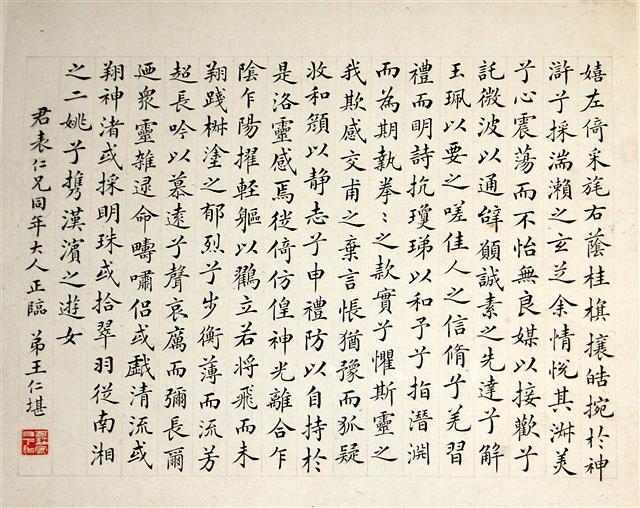 嬉左倚采旄右蔭桂旗攘皓捥於神
滸兮採湍瀨之玄芝余情悅其淑美
兮心震蕩而不怡無良媒以接歡兮
託微波以通辭願誠素之先達兮解
玉珮以要之嗟佳人之信脩兮羌習
禮而明詩抗瓊珶以和予兮指潛淵
而為期執拳〻之款實兮懼斯靈之
我欺感交甫之棄言悵猶豫而狐疑
收和顏以静志兮申禮防以自持於
是洛靈感焉徙倚仿偟神光離合乍
陰乍陽擢輕軀以鸖立若將飛而未
翔踐椒塗之郁烈兮步衡薄而流芳
超長吟以慕遠兮聲哀厲而彌長爾
迺衆靈雜遝命疇嘯侶或戲清流或
翔神渚或採明珠或拾翠羽從南湘
之二姚兮携漢濱之遊女
君表仁兄同年大人正臨 弟王仁堪